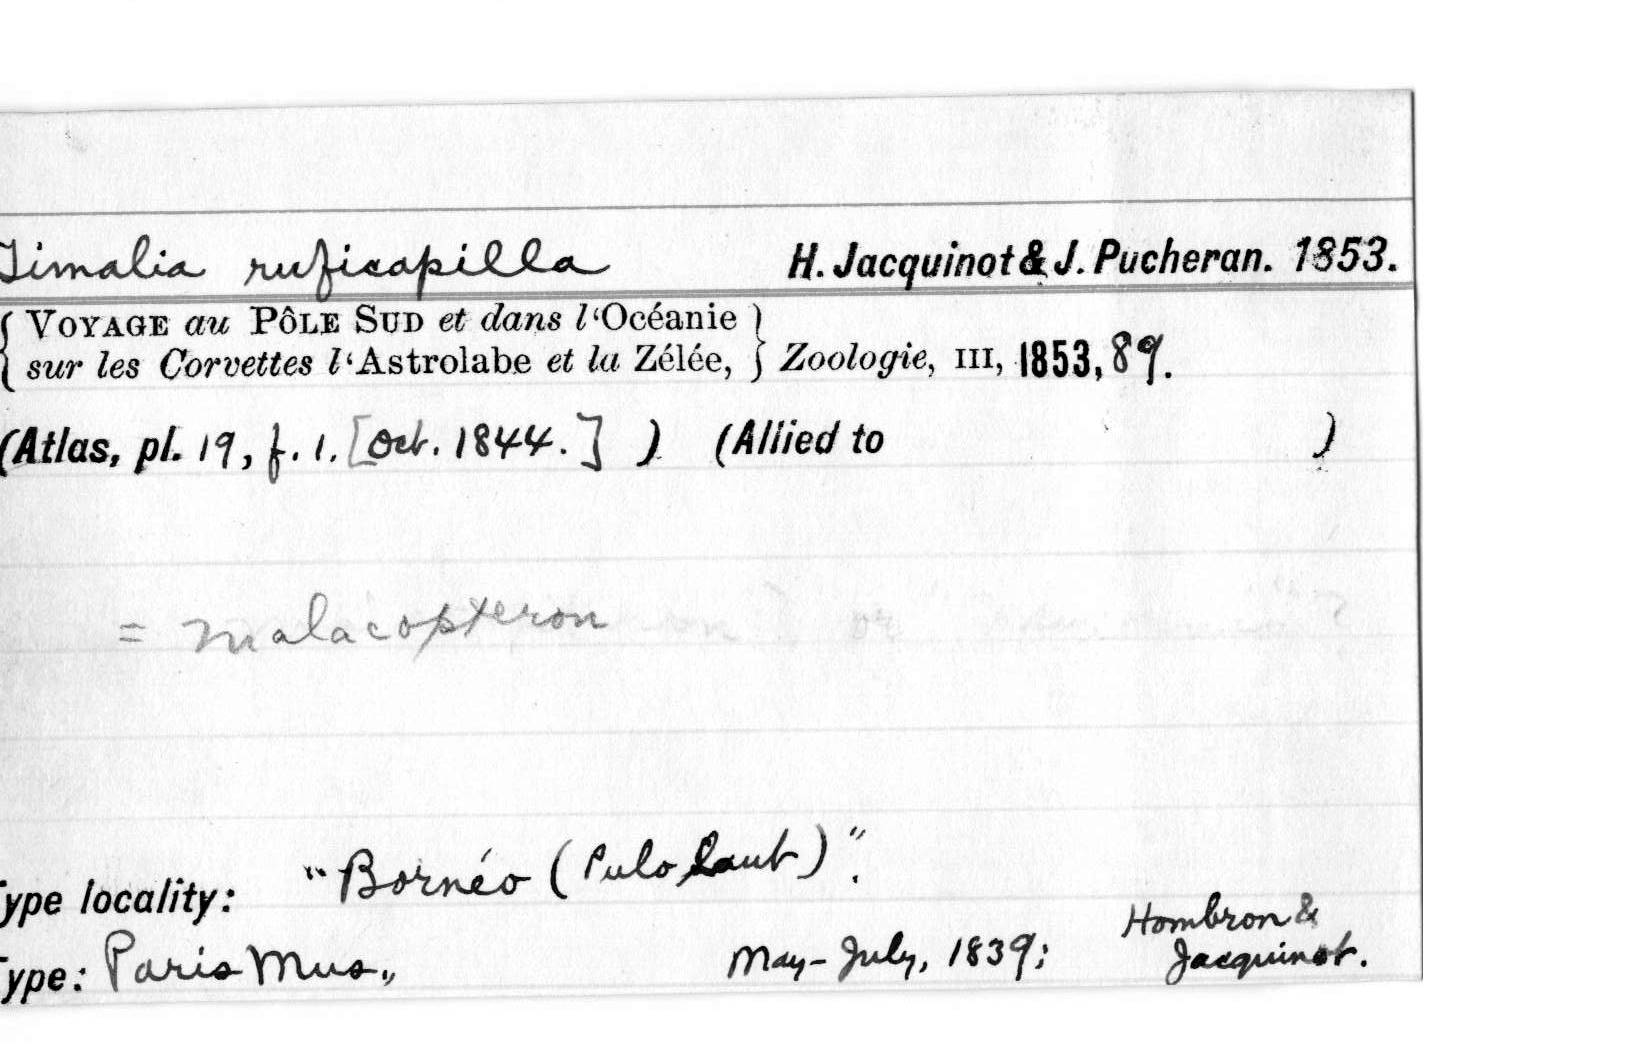 Timalia ruficapilla H. Jacquinot & J. Pucheran. 1853.
{ VOYAGE au PÔLE SUD et dans l'Océanie }
{ sur les Corvettes l'Astrolabe et la Zélée, } Zoologie, III, 1853, 89.
(Atlas, pl. 19, f. 1. [Oct. 1844.] ) (Allied to )
= Malacopteron
ype locality: "Bornéo (Pulo Laut)".
Hombron &
ype: Paris Mus., May-July, 1839; Jacquinot.